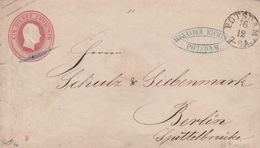 EIN SILBER GROSCHEN
ALEXANDER
POTSDAM
POTSDAM
16
12
Herren
Schulz & Siebenmark
Berlin
Spittelbrücke